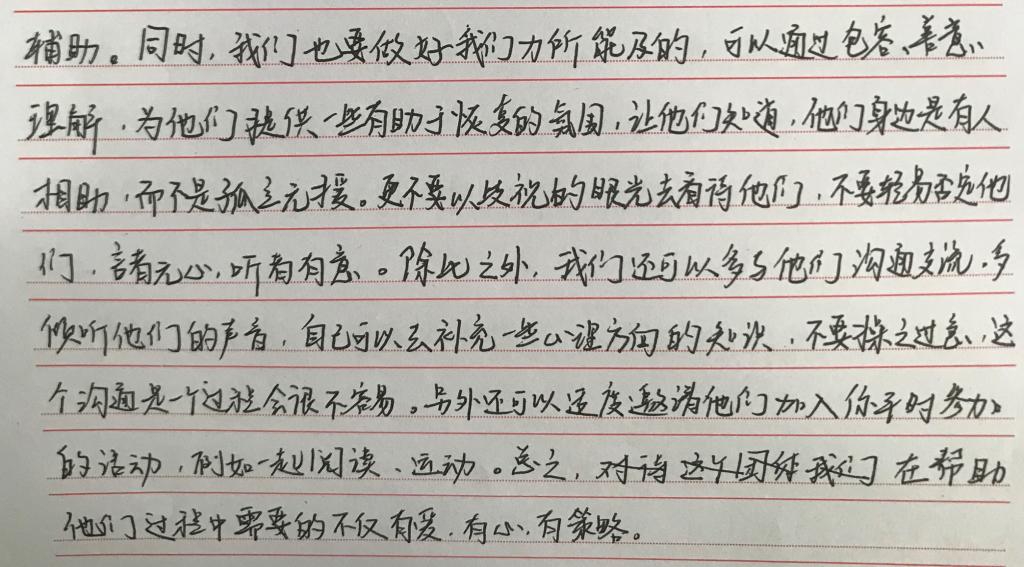 辅助。同时,我们也要做好我们力所能及的,可以通过包容、善意、
理解,为他们提供一些有助于恢复的氛围,让他们知道,他们身边是有人
相助,而不是孤立无援。更不要以歧视的眼光去看待他们,不要轻易否定他
们,言者无心,听者有意。除此之外,我们还可以多与他们沟通交流,多
倾听他们的声音,自己可以去补充一些心理方向的知识,不要操之过急,这
个沟通是一个过程会很不容易。另外还可以适度邀请他们加入你平时参加
的活动,例如一起阅读、运动。总之,对待这个团体我们在帮助
他们过程中需要的不仅有爱,有心,有策略。